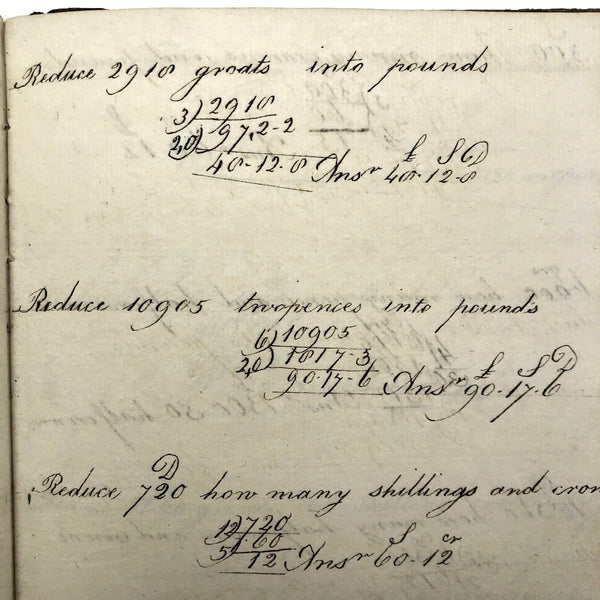 Reduce 2918 groats into pounds
3)2918
2,0) 97,2-2
48-12-8 Ansr £ S D 48-12-8
Reduce 10905 twopences into pounds
6)10905
2,0) 1817-3
90-17-6 Ansr £ S D 90-17-6
Reduce 720 D how many shillings and crow
12)720
5) 60
12 Ansr S 60-12 cr